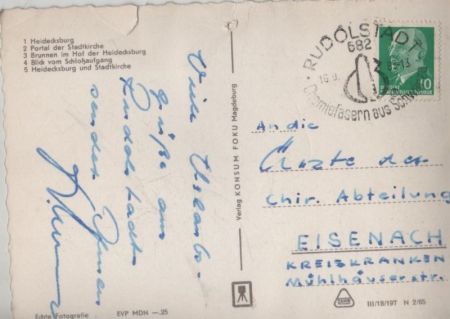 1 Heidecksburg
2 Portal der Stadtkirche
3 Brunnen im Hof der Heidecksburg
4 Blick vom Schloßaufgang
5 Heidecksburg und Stadtkirche
Viele Urlaubs-
grüße aus
Rudolstadt
senden Ihnen
Echte Fotografie
EVP MDN —.25
Verlag KONSUM FOKU Magdeburg
RUDOLSTADT
682
Chemiefasern aus
10
An die
Ärzte der
Chir. Abteilung
EISENACH
KREISKRANKEN
Mühlhäuser str.
III/18/197 N 2/65